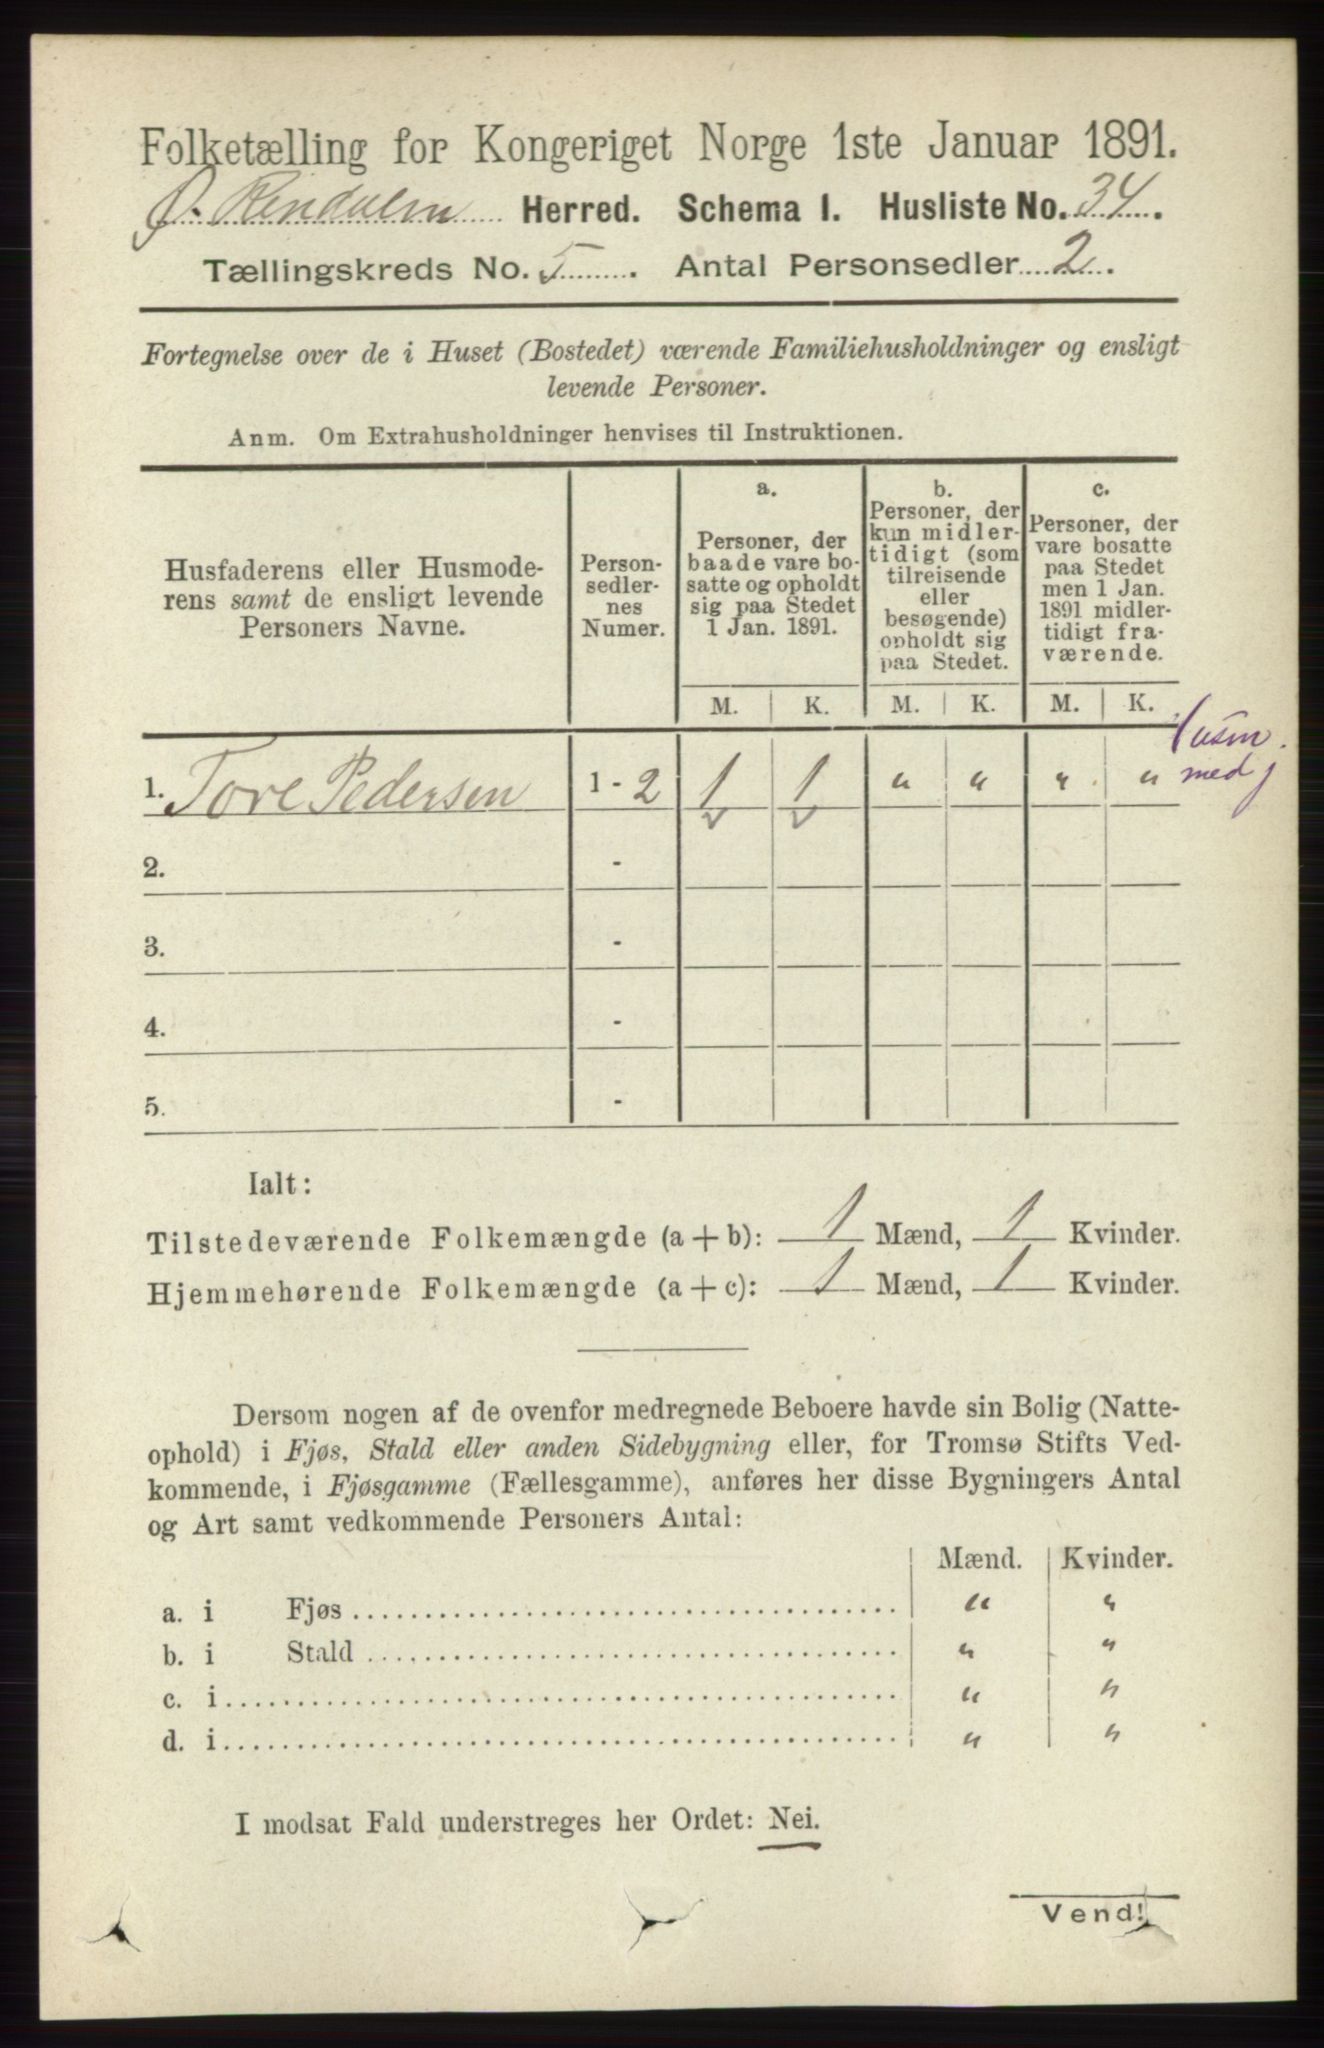 Folketælling for Kongeriget Norge 1ste Januar 1891.
Ø. Rendalen Herred. Schema I. Husliste No. 34.
Tællingskreds No. 5. Antal Personsedler 2.
Fortegnelse over de i Huset (Bostedet) værende Familiehusholdninger og ensligt
levende Personer.
Anm. Om Extrahusholdninger henvises til Instruktionen.
Husfaderens eller Husmode-
rens samt de ensligt levende
Personers Navne.
Person-
sedler-
nes
Numer.
a.
Personer, der
baade vare bo-
satte og opholdt
sig paa Stedet
1 Jan. 1891.
b.
Personer, der
kun midler-
tidigt (som
tilreisende
eller
besøgende)
opholdt sig
paa Stedet.
c.
Personer, der
vare bosatte
paa Stedet
men 1 Jan.
1891 midler-
tidigt fra-
værende.
M. K. M. K. M. K.
Husm.
med j
1. Tore Pedersen 1 - 2 1 1 " " " "
v v
2. -
3. -
4. -
5. -
Ialt:
Tilstedeværende Folkemængde (a + b): 1 Mænd, 1 Kvinder.
Hjemmehørende Folkemængde (a + c): 1 Mænd, 1 Kvinder.
Dersom nogen af de ovenfor medregnede Beboere havde sin Bolig (Natte-
ophold) i Fjøs, Stald eller anden Sidebygning eller, for Tromsø Stifts Ved-
kommende, i Fjøsgamme (Fællesgamme), anføres her disse Bygningers Antal
og Art samt vedkommende Personers Antal:
Mænd. Kvinder.
a. i Fjøs " "
b. i Stald " "
c. i " "
d. i " "
I modsat Fald understreges her Ordet: Nei.
Vend!